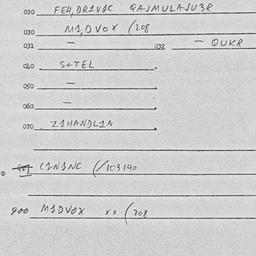 020 FEH, DR1V1C QAJMULAJU3R
030 M1, DVOX (208
031 — 032 — QUKR
040 S+TEL
050 —
060 —
070 Z1HANDL1N
C1N1NC (/103140
900 M1DVOX xx (208